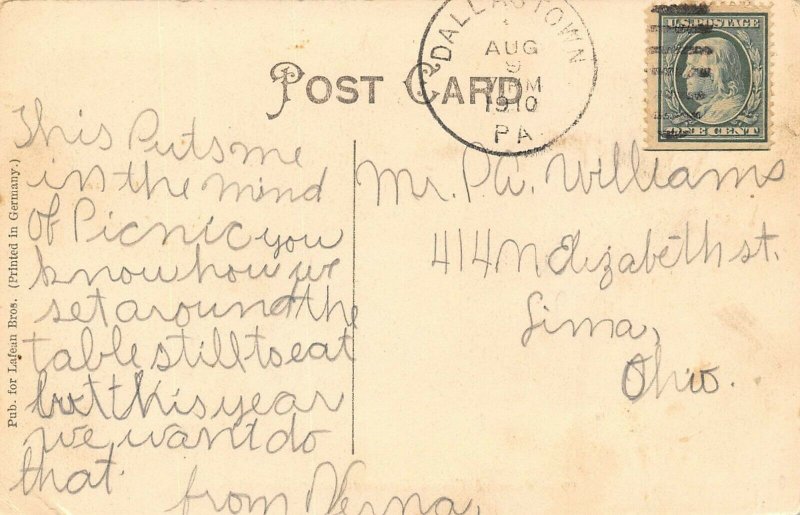 DALLASTOWN
AUG
9
1910
PA
U.S. POSTAGE
ONE CENT
POST CARD
This Puts me
in the mind
of Picnic you
know how we
set around the
table still to eat
but this year
we want do
that.
from Verna,
Mr. P.A. Williams
414 N Elizabeth st.
Lima,
Ohio.
Pub. for Lafean Bros. (Printed in Germany.)